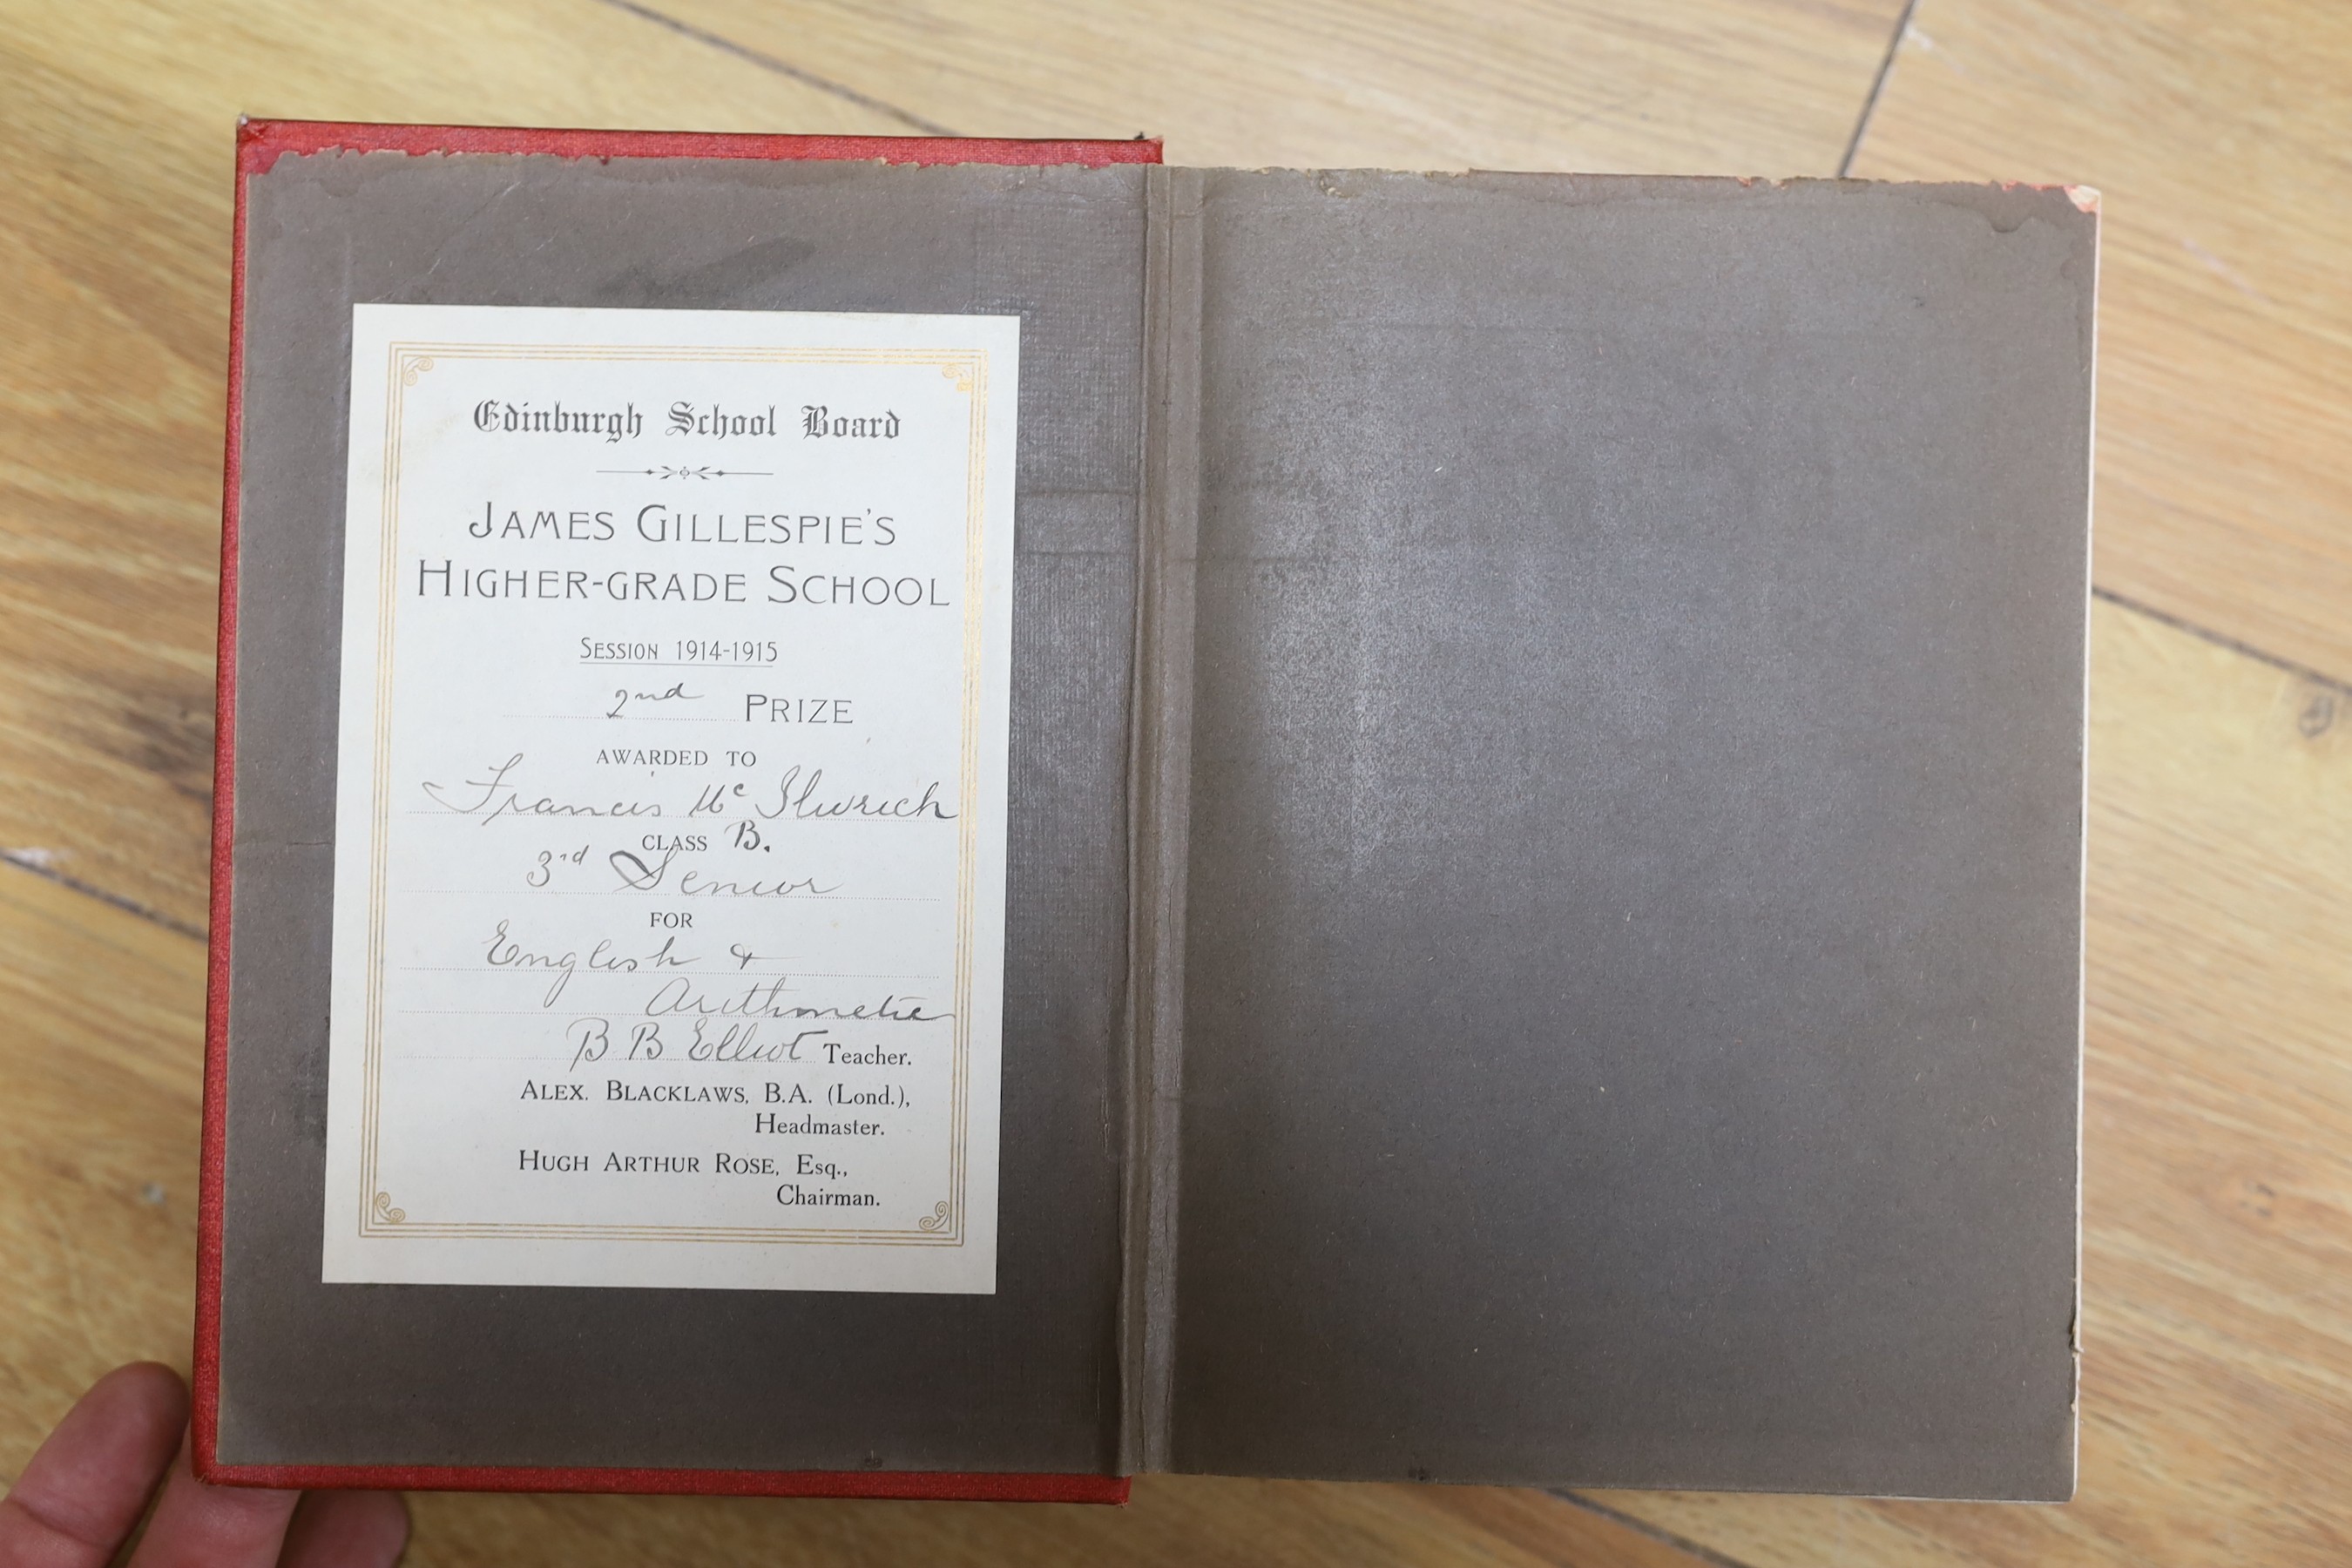 Edinburgh School Board
JAMES GILLESPIE'S
HIGHER-GRADE SCHOOL
SESSION 1914-1915
2nd PRIZE
AWARDED TO
Francis Mc Ilwrick
CLASS B.
3rd Senior
FOR
English &
Arithmetic
B B Elliot Teacher.
ALEX. BLACKLAWS, B.A. (Lond.),
Headmaster.
HUGH ARTHUR ROSE, Esq.,
Chairman.